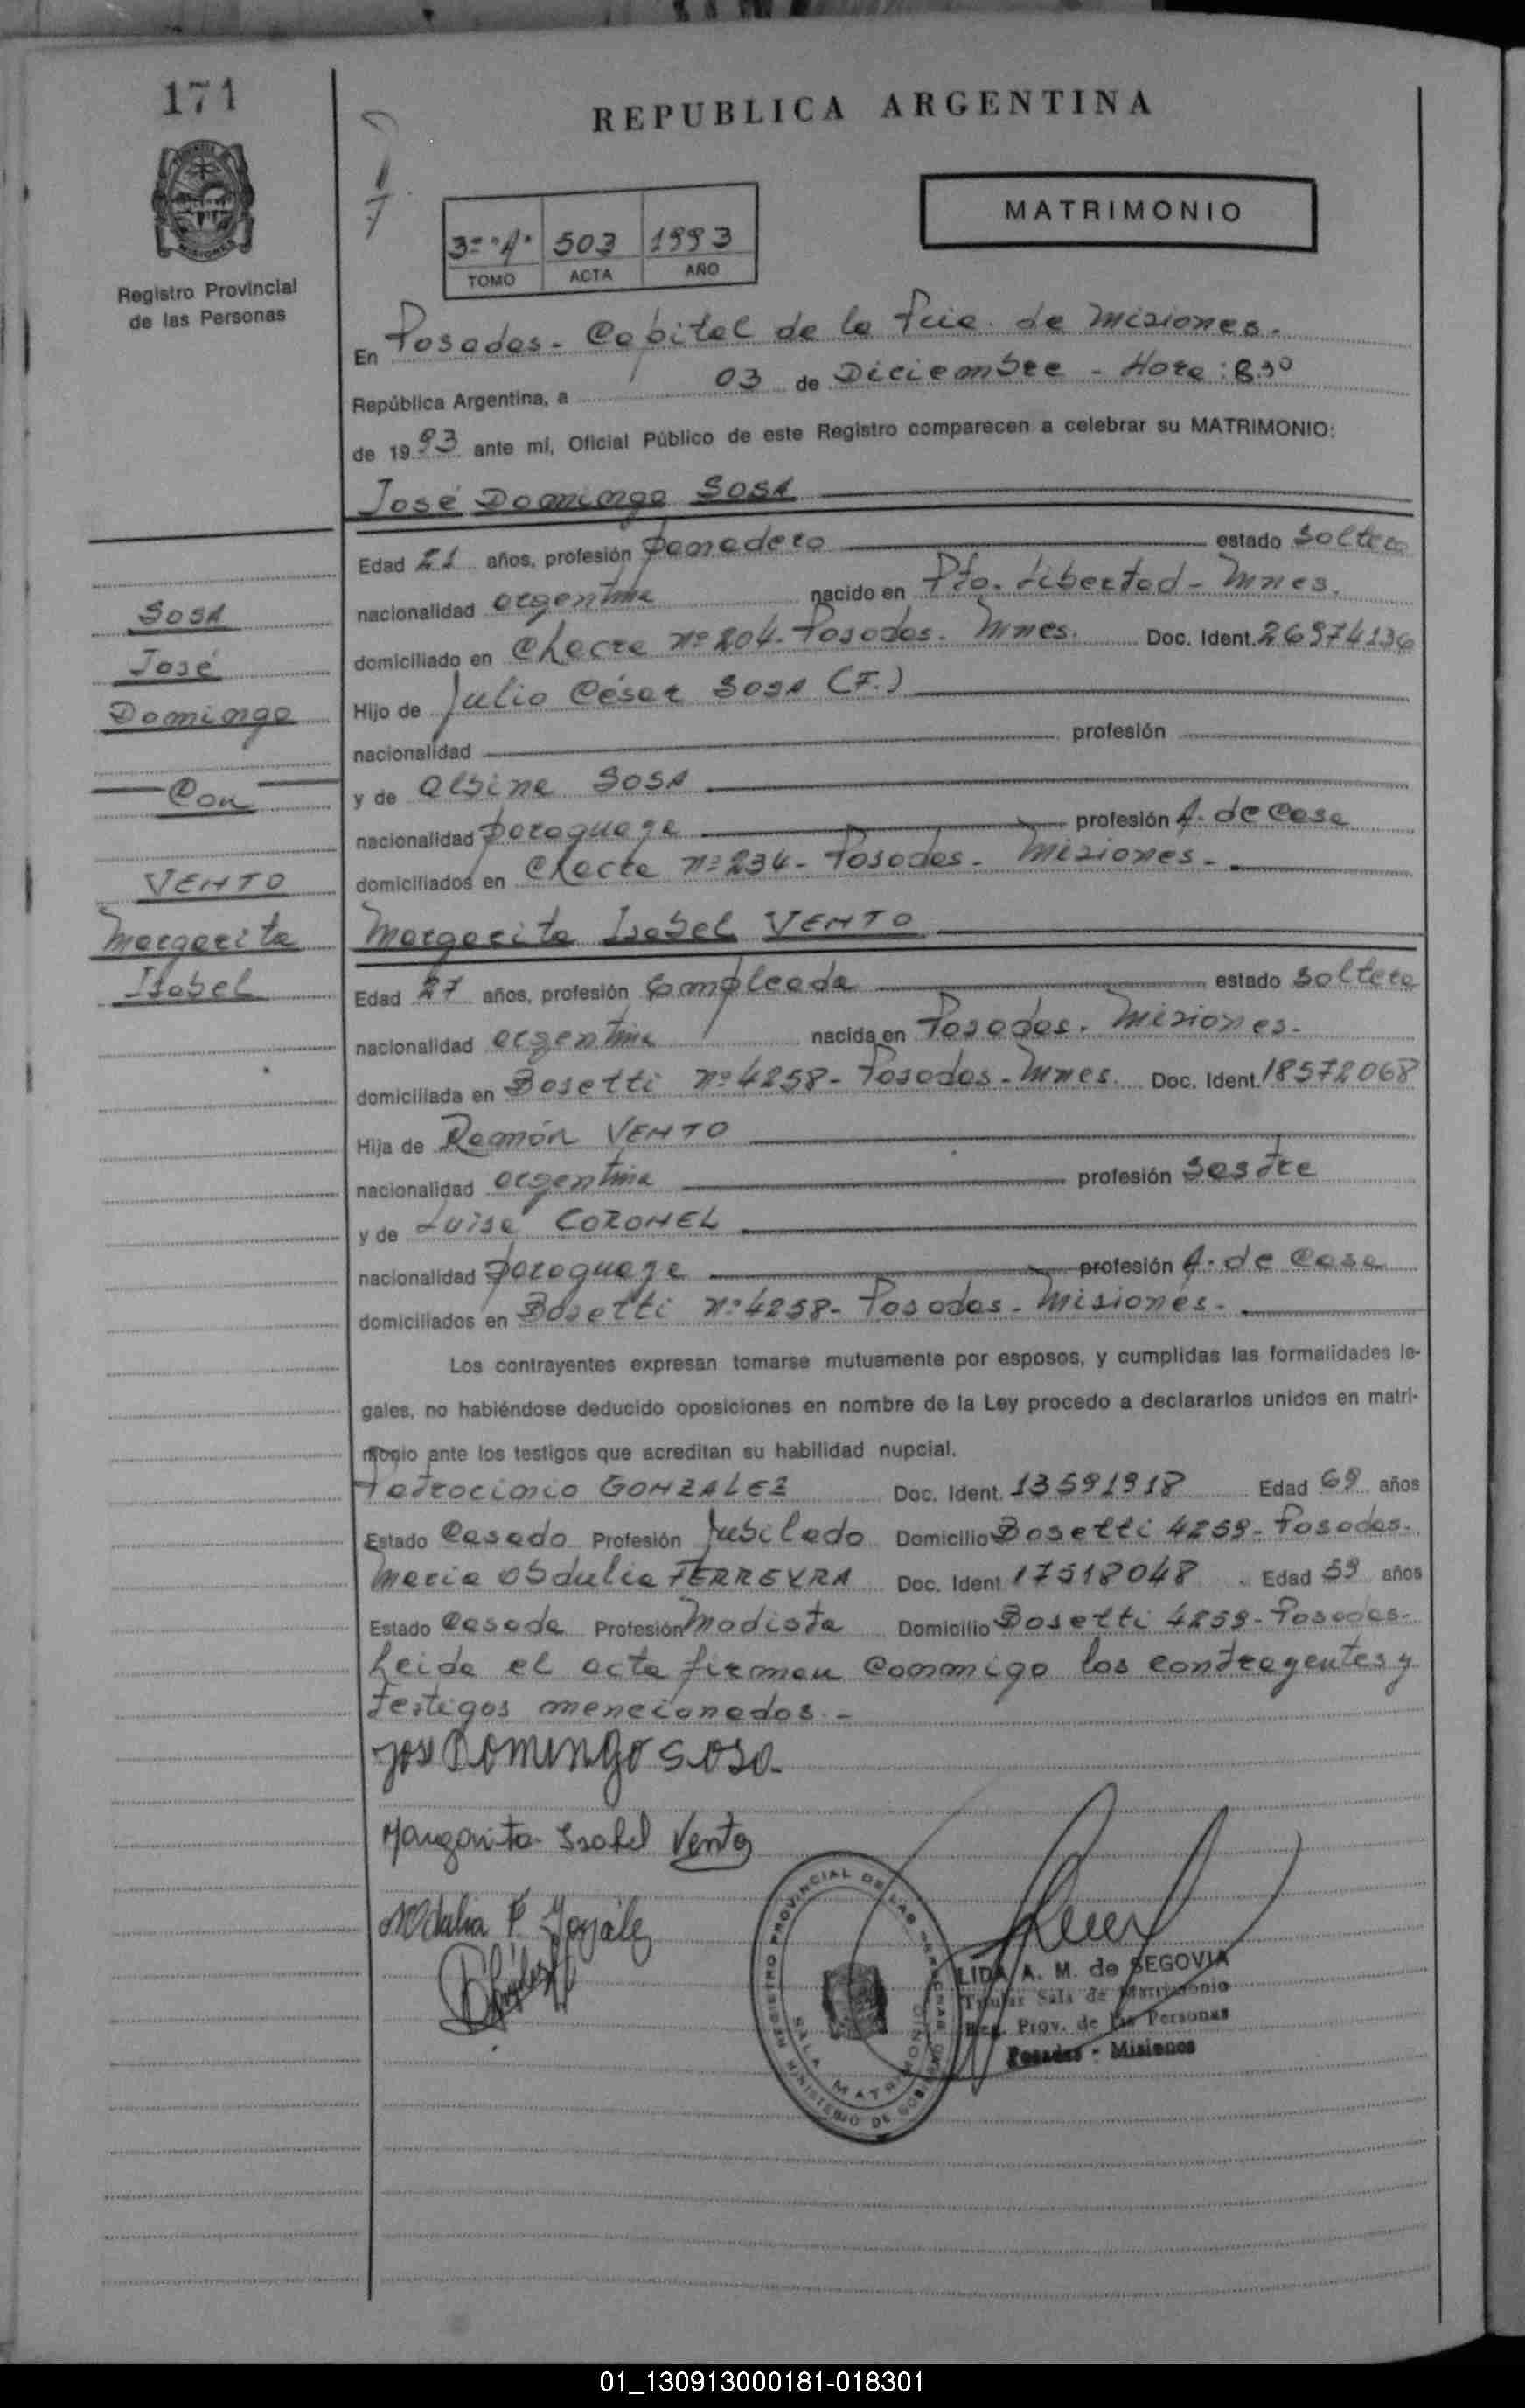 171
REPUBLICA ARGENTINA
MATRIMONIO
Registro Provincial
de las Personas
3º "A" 503 1993
TOMO ACTA AÑO
En Posadas - Capital de la Pcia. de Misiones.
República Argentina, a 03 de Diciembre - Hora: 8³⁰
de 1993 ante mi, Oficial Público de este Registro comparecen a celebrar su MATRIMONIO:
José Domingo SOSA
Edad 21 años, profesión panadero estado soltero
nacionalidad argentina nacido en Pto. Libertad - Mnes.
domiciliado en Chacra nº 204 - Posadas. Mnes. Doc. Ident. 26974136
Hijo de Julio César SOSA (F.)
nacionalidad profesión
y de Albina SOSA
nacionalidad paraguaya profesión A. de Casa
domiciliados en Chacra nº 234 - Posadas - Misiones -
Margarita Isabel VENTO
Edad 27 años, profesión Empleada estado soltera
nacionalidad argentina nacida en Posadas. Misiones.
domiciliada en Bosetti nº 4258 - Posadas - Mnes. Doc. Ident. 18572068
Hija de Ramón VENTO
nacionalidad argentina profesión sastre
y de Luisa CORONEL
nacionalidad paraguaya profesión A. de Casa
domiciliados en Bosetti nº 4258 - Posadas - Misiones -
Los contrayentes expresan tomarse mutuamente por esposos, y cumplidas las formalidades le-
gales, no habiéndose deducido oposiciones en nombre de la Ley procedo a declararlos unidos en matri-
monio ante los testigos que acreditan su habilidad nupcial.
Patrocinio GONZALEZ Doc. Ident. 13591918 Edad 69 años
Estado Casado Profesión Jubilado Domicilio Bosetti 4259 - Posadas.
María Obdulia FERREYRA Doc. Ident 17518048 Edad 59 años
Estado Casada Profesión Modista Domicilio Bosetti 4259 - Posadas -
Leida el acta firman conmigo los contrayentes y
testigos mencionados. -
José DOMINGO SOSA
Margarita Isabel Vento
Obdulia F. González
SOSA
José
Domingo
Con
VENTO
Margarita
Isabel
REGISTRO PROVINCIAL DE LAS PERSONAS
MINISTERIO DE GOBIERNO
SALA MATRIMONIO
LIDA A. M. de SEGOVIA
Titular Sala de Matrimonio
Reg. Prov. de las Personas
Posadas - Misiones
01_130913000181-018301